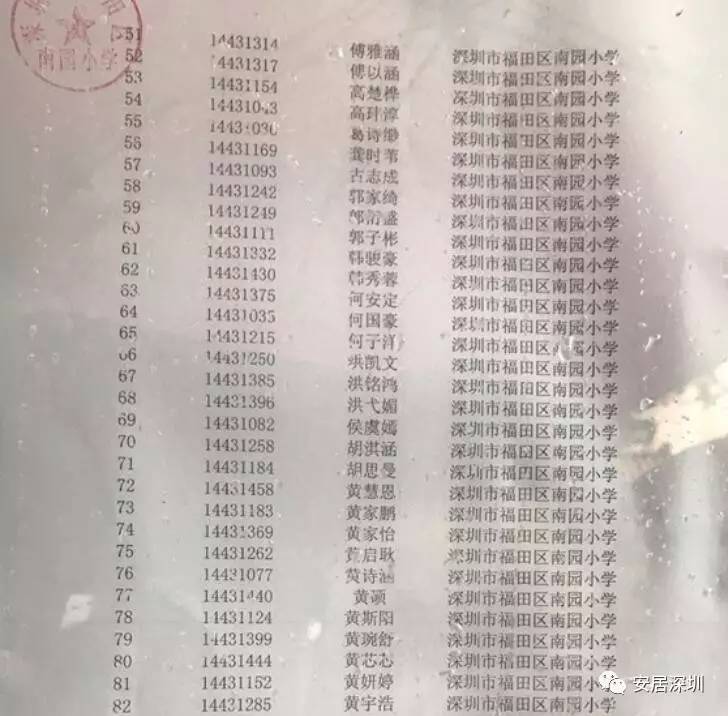 南园小学
51 14431314 傅雅涵 深圳市福田区南园小学
52 14431317 傅以涵 深圳市福田区南园小学
53 14431154 高楚桦 深圳市福田区南园小学
54 14431043 高玮淳 深圳市福田区南园小学
55 深圳市福田区南园小学
56 14431169 龚时苇 深圳市福田区南园小学
57 14431093 古志成 深圳市福田区南园小学
58 14431242 郭家绮 深圳市福田区南园小学
59 14431249 深圳市福田区南园小学
60 14431111 郭子彬 深圳市福田区南园小学
61 14431332 韩骏豪 深圳市福田区南园小学
62 14431430 韩秀蓉 深圳市福田区南园小学
63 14431375 何安定 深圳市福田区南园小学
64 14431035 何国豪 深圳市福田区南园小学
65 14431215 何子洋 深圳市福田区南园小学
66 14431250 洪凯文 深圳市福田区南园小学
67 14431385 洪铭鸿 深圳市福田区南园小学
68 14431396 洪弋媚 深圳市福田区南园小学
69 14431082 侯虞嫣 深圳市福田区南园小学
70 14431258 胡淇涵 深圳市福田区南园小学
71 14431184 胡思曼 深圳市福田区南园小学
72 14431458 黄慧恩 深圳市福田区南园小学
73 14431183 黄家鹏 深圳市福田区南园小学
74 14431369 黄家怡 深圳市福田区南园小学
75 14431262 黄启耿 深圳市福田区南园小学
76 14431077 黄诗涵 深圳市福田区南园小学
77 14431440 黄硕 深圳市福田区南园小学
78 14431124 黄斯阳 深圳市福田区南园小学
79 14431399 黄琬舒 深圳市福田区南园小学
80 14431444 黄芯芯 深圳市福田区南园小学
81 14431152 黄妍婷 深圳市福田区南园小学
82 14431285 黄宇浩
安居深圳